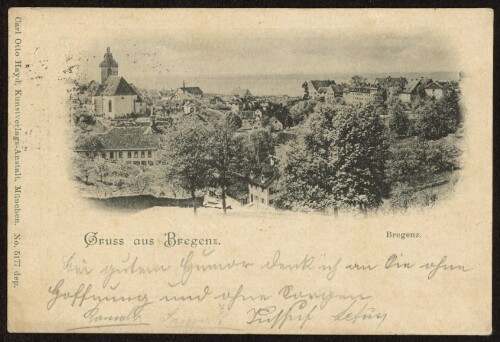 Carl Otto Hayd, Kunstverlags-Anstalt, München. No. 5177 dep.
Gruss aus Bregenz.
Bregenz.
Bei gutem Humor denk ich an Sie ohne
Hoffnung und ohne Sorgen
Jussuf